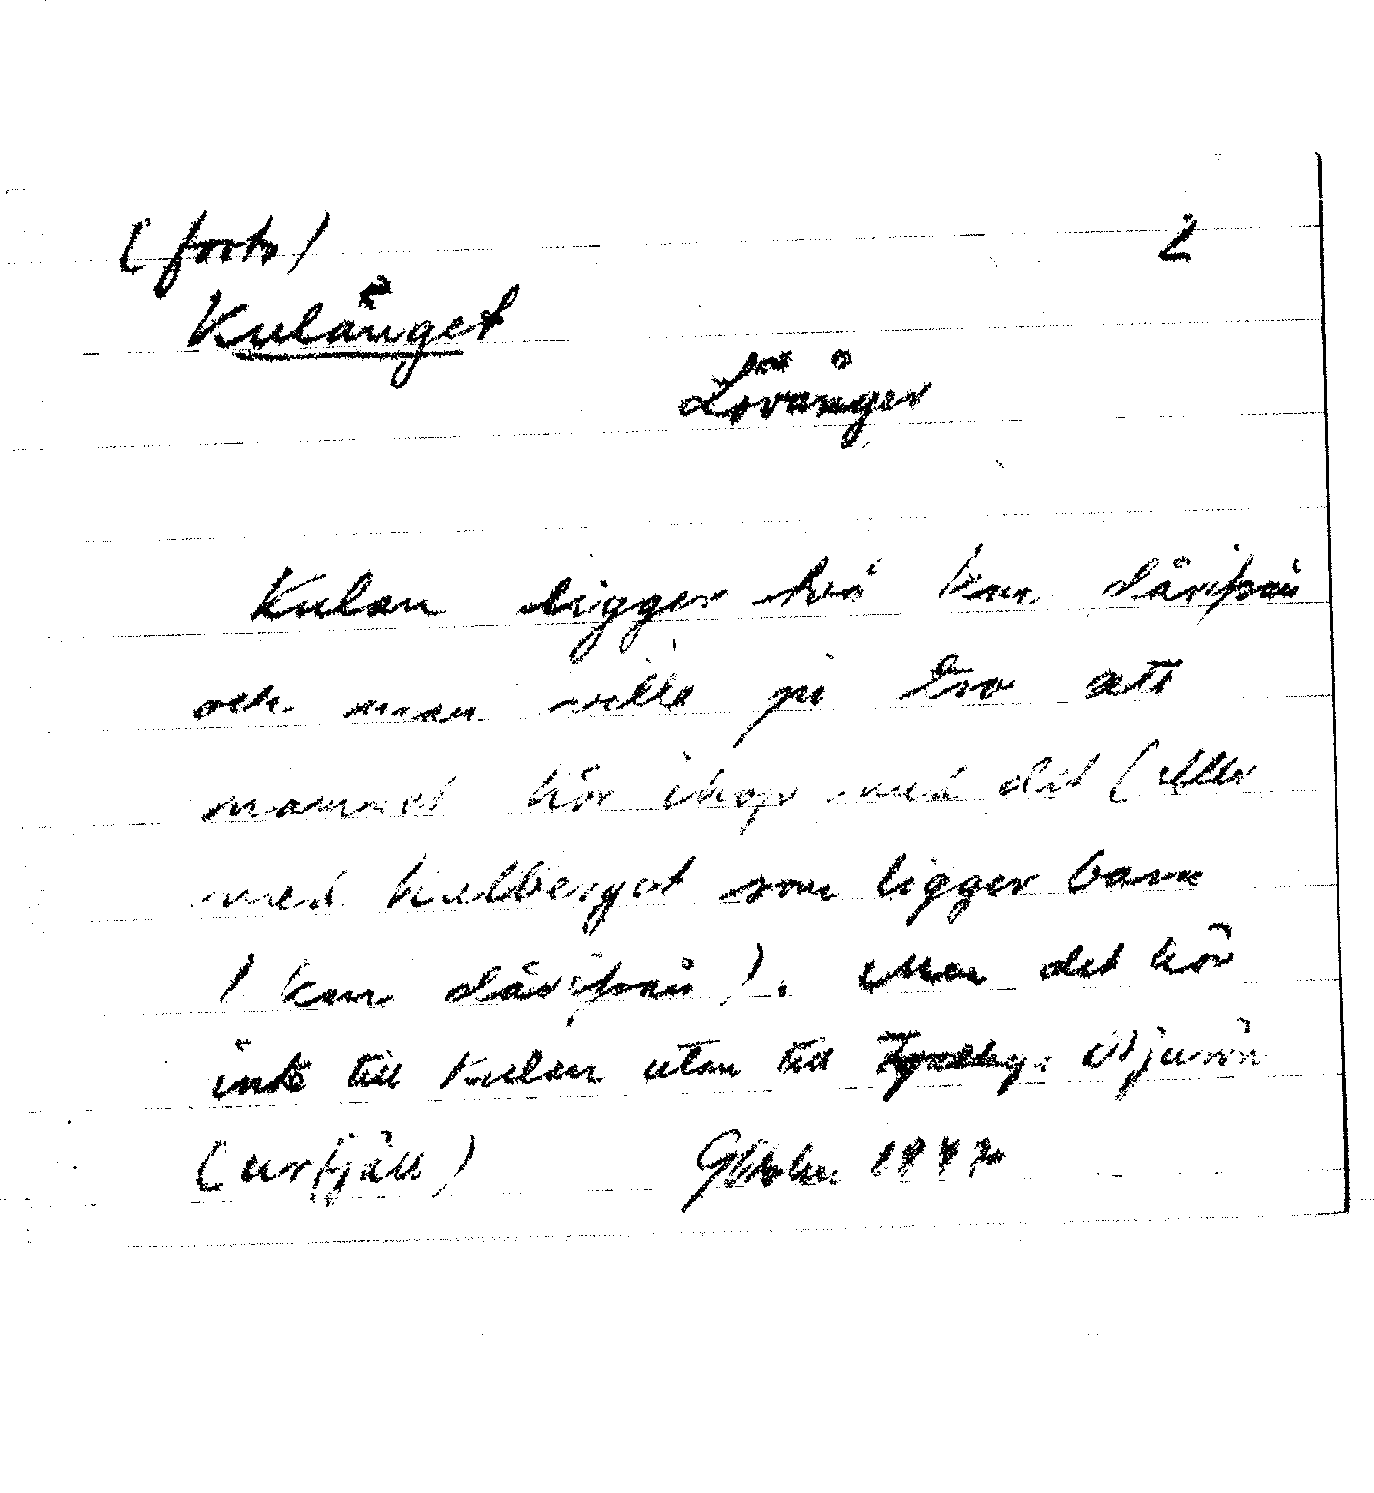 (forts) 2
Kulänget
Lövånger
Kulan ligger två km därifrån
och man ville ju tro att
namnet hör ihop med det (eller
med Kullberget som ligger bara
1 km därifrån). Men det hör
inte till Kulan utan till Bjurön
(urfjäll) Oktober 1947